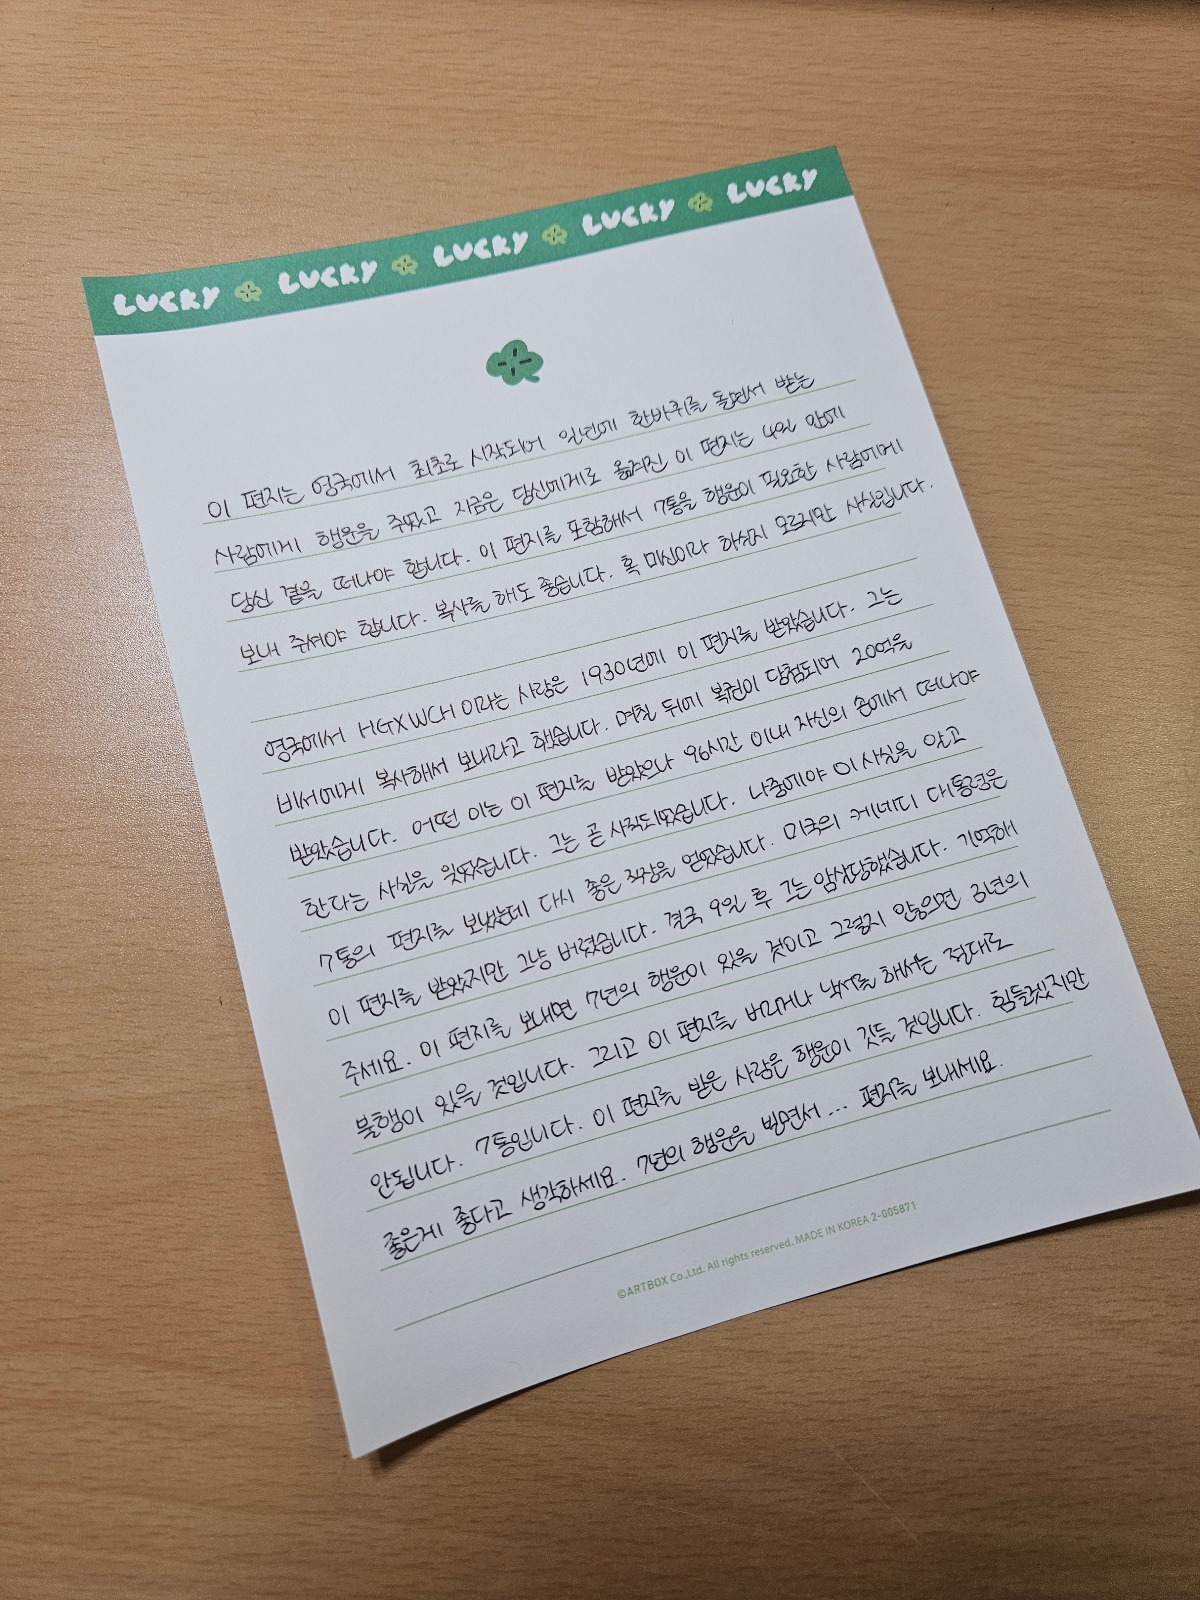 LUCKY LUCKY LUCKY LUCKY LUCKY
이 편지는 영국에서 최초로 시작되어 일년에 한바퀴를 돌면서 받는
사람에게 행운을 주었고 지금은 당신에게로 옮겨진 이 편지는 4일 안에
당신 곁을 떠나야 합니다. 이 편지를 포함해서 7통을 행운이 필요한 사람에게
보내 주셔야 합니다. 복사를 해도 좋습니다. 혹 미신이라 하실지 모르지만 사실입니다.
영국에서 HGXWCH이라는 사람은 1930년에 이 편지를 받았습니다. 그는
비서에게 복사해서 보내라고 했습니다. 며칠 뒤에 복권이 당첨되어 20억을
받았습니다. 어떤 이는 이 편지를 받았으나 96시간 이내 자신의 손에서 떠나야
한다는 사실을 잊었습니다. 그는 곧 사직되었습니다. 나중에야 이 사실을 알고
7통의 편지를 보냈는데 다시 좋은 직장을 얻었습니다. 미국의 케네디 대통령은
이 편지를 받았지만 그냥 버렸습니다. 결국 9일 후 그는 암살당했습니다. 기억해
주세요. 이 편지를 보내면 7년의 행운이 있을 것이고 그렇지 않으면 3년의
불행이 있을 것입니다. 그리고 이 편지를 버리거나 낙서를 해서는 절대로
안됩니다. 7통입니다. 이 편지를 받은 사람은 행운이 깃들 것입니다. 힘들겠지만
좋은게 좋다고 생각하세요. 7년의 행운을 빌면서... 편지를 보내세요.
©ARTBOX Co.,Ltd. All rights reserved. MADE IN KOREA 2-005871